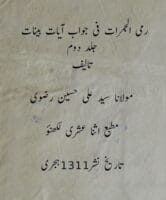 رمی الجمرات فی جواب آیات بینات
جلد دوم
تالیف
مولانا سید علی حسین رضوی
مطبع اثنا عشری لکھنؤ
تاریخ نشر 1311 ہجری